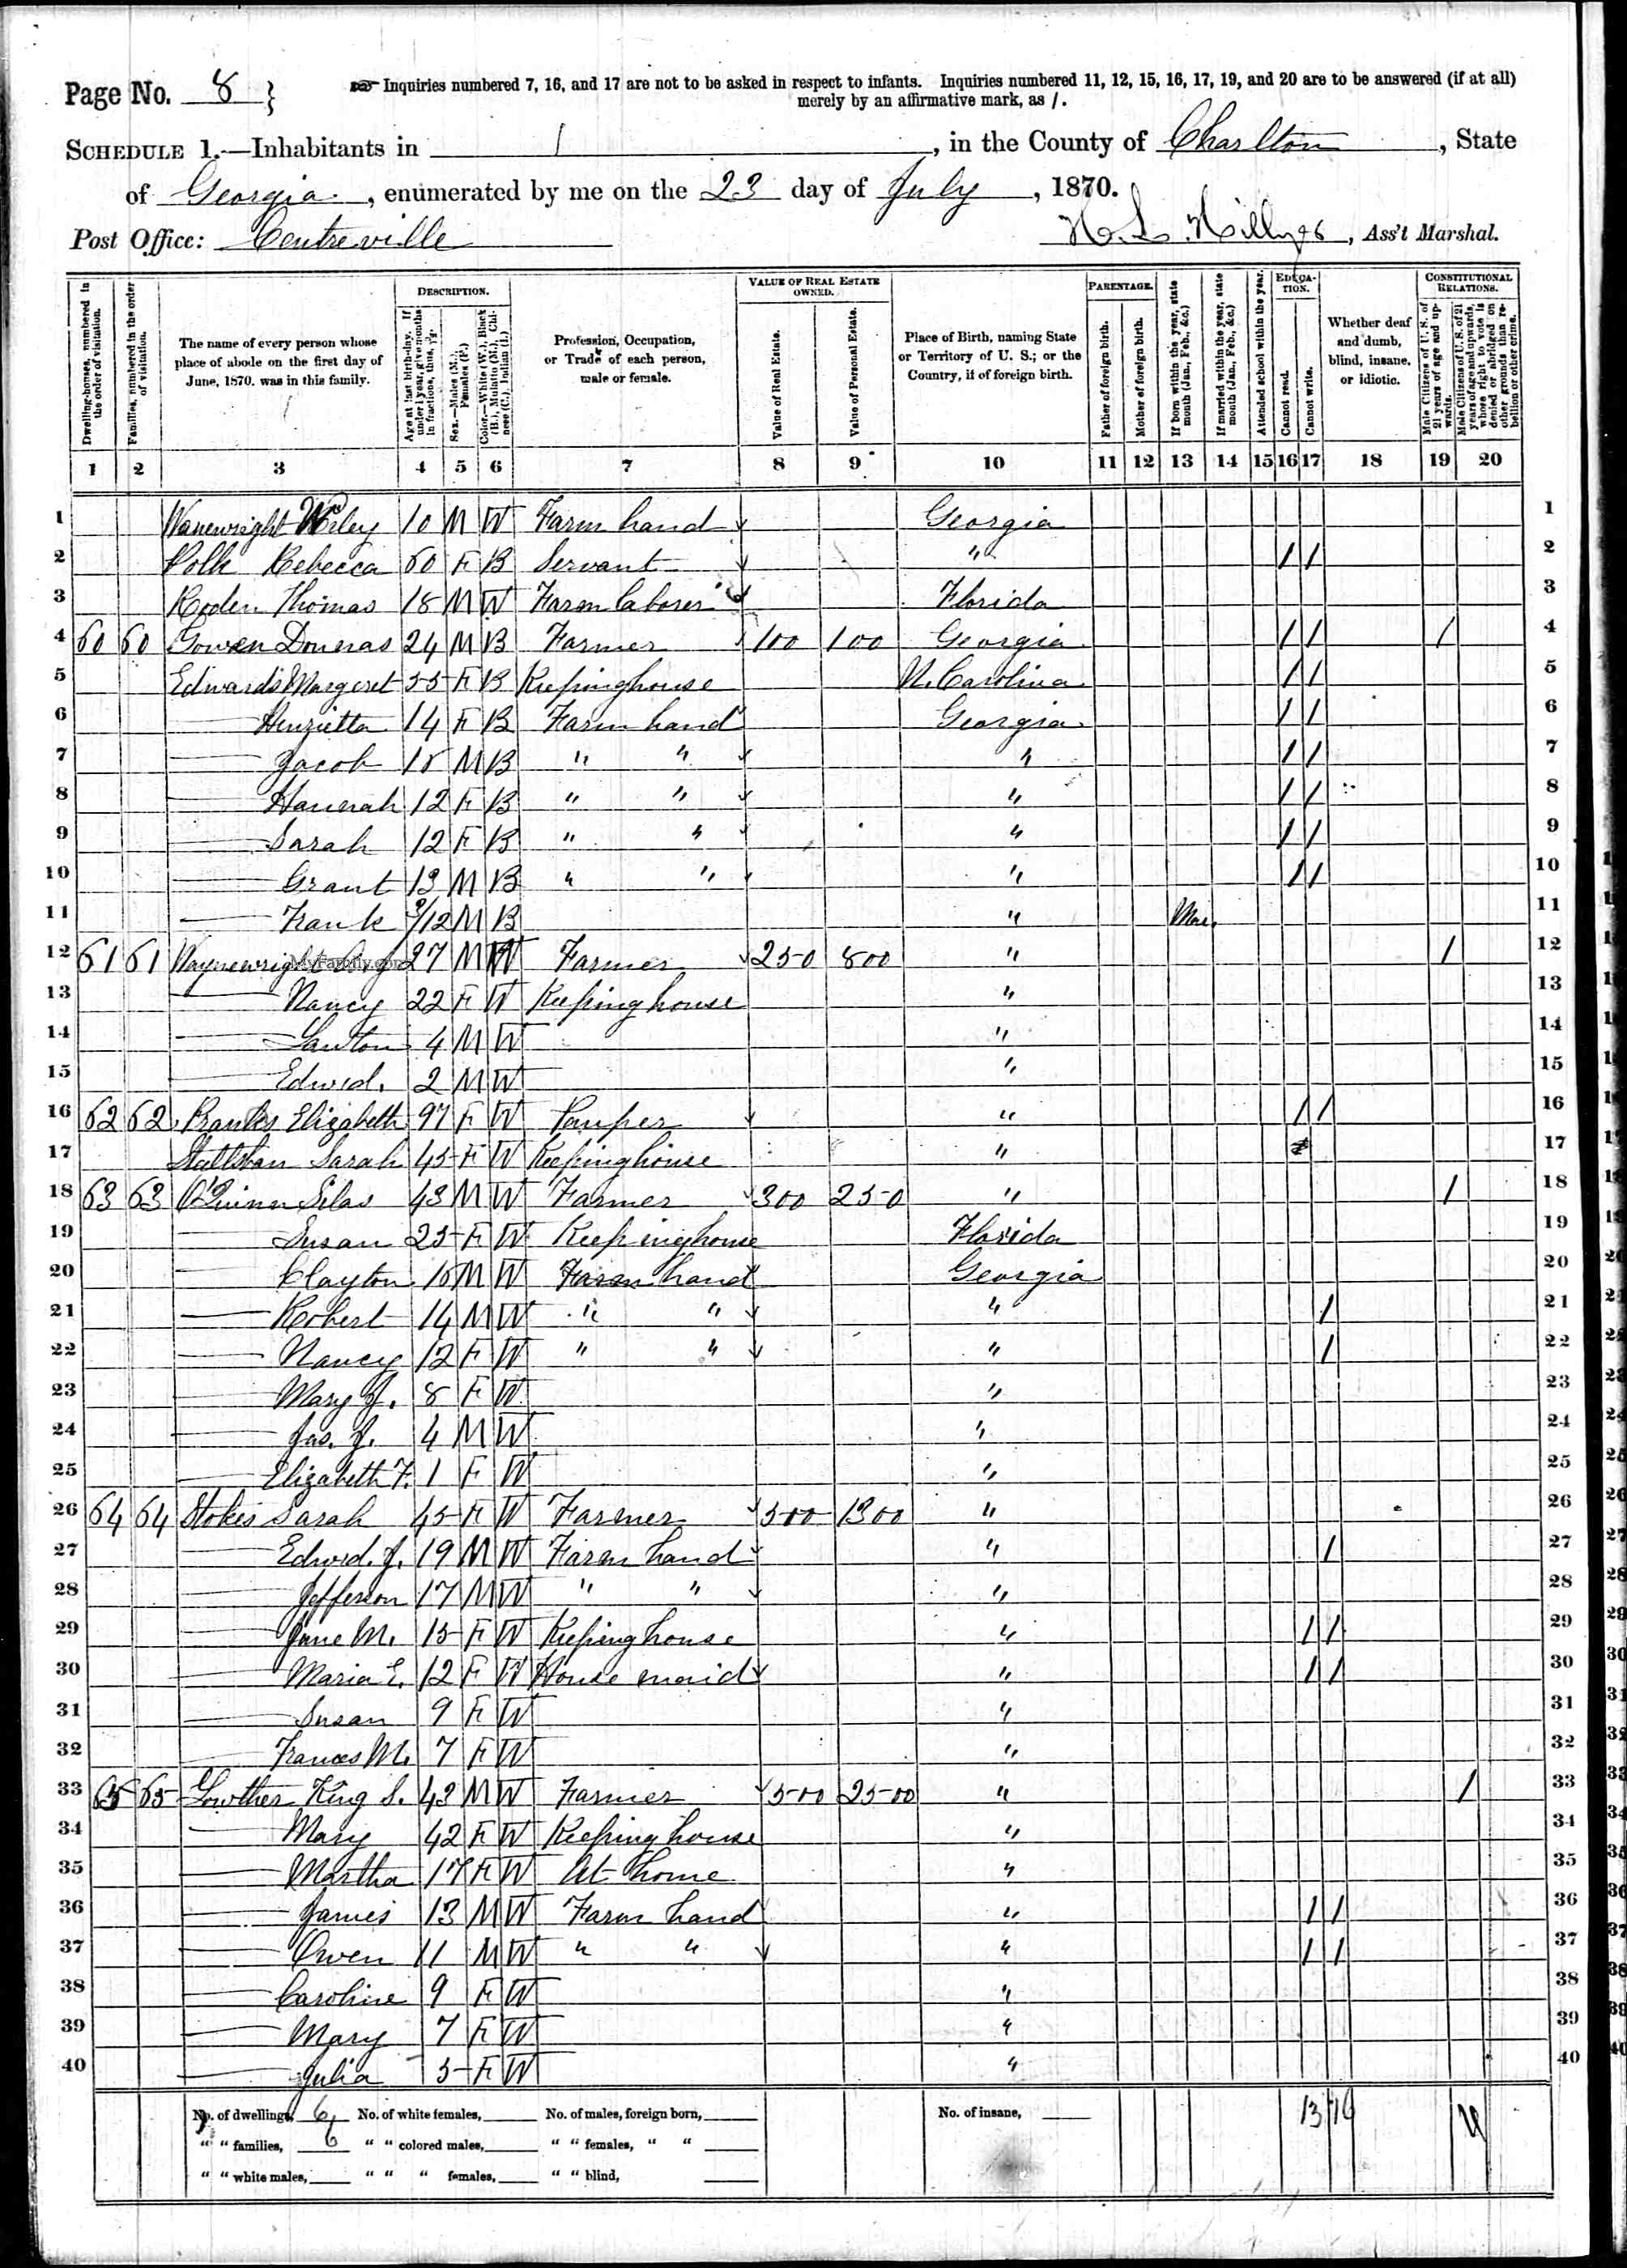 Page No. 8 }
Inquiries numbered 7, 16, and 17 are not to be asked in respect to infants. Inquiries numbered 11, 12, 15, 16, 17, 19, and 20 are to be answered (if at all)
merely by an affirmative mark, as /.
SCHEDULE 1.—Inhabitants in / , in the County of Charlton , State
of Georgia , enumerated by me on the 23 day of July , 1870.
Post Office: Centreville
, Ass't Marshal.
DESCRIPTION.
VALUE OF REAL ESTATE OWNED.
PARENTAGE.
EDUCATION.
CONSTITUTIONAL RELATIONS.
Dwelling-houses, numbered in the order of visitation.
Families, numbered in the order of visitation.
The name of every person whose place of abode on the first day of June, 1870, was in this family.
Age at last birth-day. If under 1 year, give months in fractions, thus,
Sex.—Males (M.), Females (F.)
Color.—White (W.), Black (B.), Mulatto (M.), Chinese (C.), Indian (I.)
Profession, Occupation, or Trade of each person, male or female.
Value of Real Estate.
Value of Personal Estate.
Place of Birth, naming State or Territory of U. S.; or the Country, if of foreign birth.
Father of foreign birth.
Mother of foreign birth.
If born within the year, state month (Jan., Feb., &c.)
If married within the year, state month (Jan., Feb., &c.)
Attended school within the year.
Cannot read.
Cannot write.
Whether deaf and dumb, blind, insane, or idiotic.
Male Citizens of U. S. of 21 years of age and upwards.
Male Citizens of U. S. of 21 years of age and upwards, whose right to vote is denied or abridged on other grounds than rebellion or other crime.
1 2 3 4 5 6 7 8 9 10 11 12 13 14 15 16 17 18 19 20
1 Wanewright Wiley 10 M W Farm hand Georgia 1
2 Polk Rebecca 60 F B Servant " / / 2
3 Roden Thomas 18 M W Farm laborer Florida 3
4 60 60 Gowen 24 M B Farmer 100 100 Georgia / / / 4
5 Edwards Margeret 55 F B Keeping house N. Carolina / / 5
6 Henrietta 14 F B Farm hand Georgia / / 6
7 Jacob M B " " " / / 7
8 Hannah 12 F B " " " / / 8
9 Sarah 12 F B " " " / / 9
10 Grant 13 M B " " " / / 10
11 Frank M B " Mar. 11
12 61 61 Waynewright 27 M W Farmer 250 800 " / 12
MyFamily.com
13 Nancy 22 F W Keeping house " 13
14 4 M W " 14
15 Edwd. 2 M W " 15
16 62 62 Elizabeth 97 F W Pauper " / / 16
17 Sarah 45 F W Keeping house " 17
18 63 63 O'Quinn Silas 43 M W Farmer 300 250 " / 18
19 Susan 25 F W Keeping house Florida 19
20 Clayton M W Farm hand Georgia 20
21 Robert 14 M W " " " / 21
22 Nancy 12 F W " " " / 22
23 Mary J. 8 F W " 23
24 Jas. J. 4 M W " 24
25 Elizabeth F. 1 F W " 25
26 64 64 Stokes Sarah 45 F W Farmer 500 1300 " 26
27 Edwd. J. 19 M W Farm hand " / 27
28 Jefferson 17 M W " " " 28
29 Jane M. 15 F W Keeping house " / / 29
30 Maria E. 12 F W House maid " / / 30
31 Susan 9 F W " 31
32 Frances M. 7 F W " 32
33 65 65 Lowther King S. 43 M W Farmer 500 2500 " / 33
34 Mary 42 F W Keeping house " 34
35 Martha 17 F W At home " 35
36 James 13 M W Farm hand " / / 36
37 Owen 11 M W " " " / / 37
38 Caroline 9 F W " 38
39 Mary 7 F W " 39
40 Julia 5 F W " 40
No. of dwellings, 6 No. of white females, No. of males, foreign born, No. of insane, 13 16
" " families, 6 " " colored males, " " females, " "
" " white males, " " " females, " " blind,